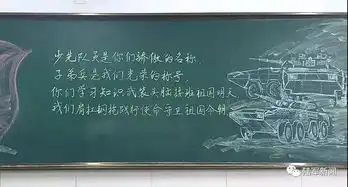 少先队员是你们骄傲的名称
子弟兵是我们光荣的称号
你们学习知识武装头脑接班祖国明天
我们肩扛钢枪践行使命守卫祖国今朝
陆军新闻